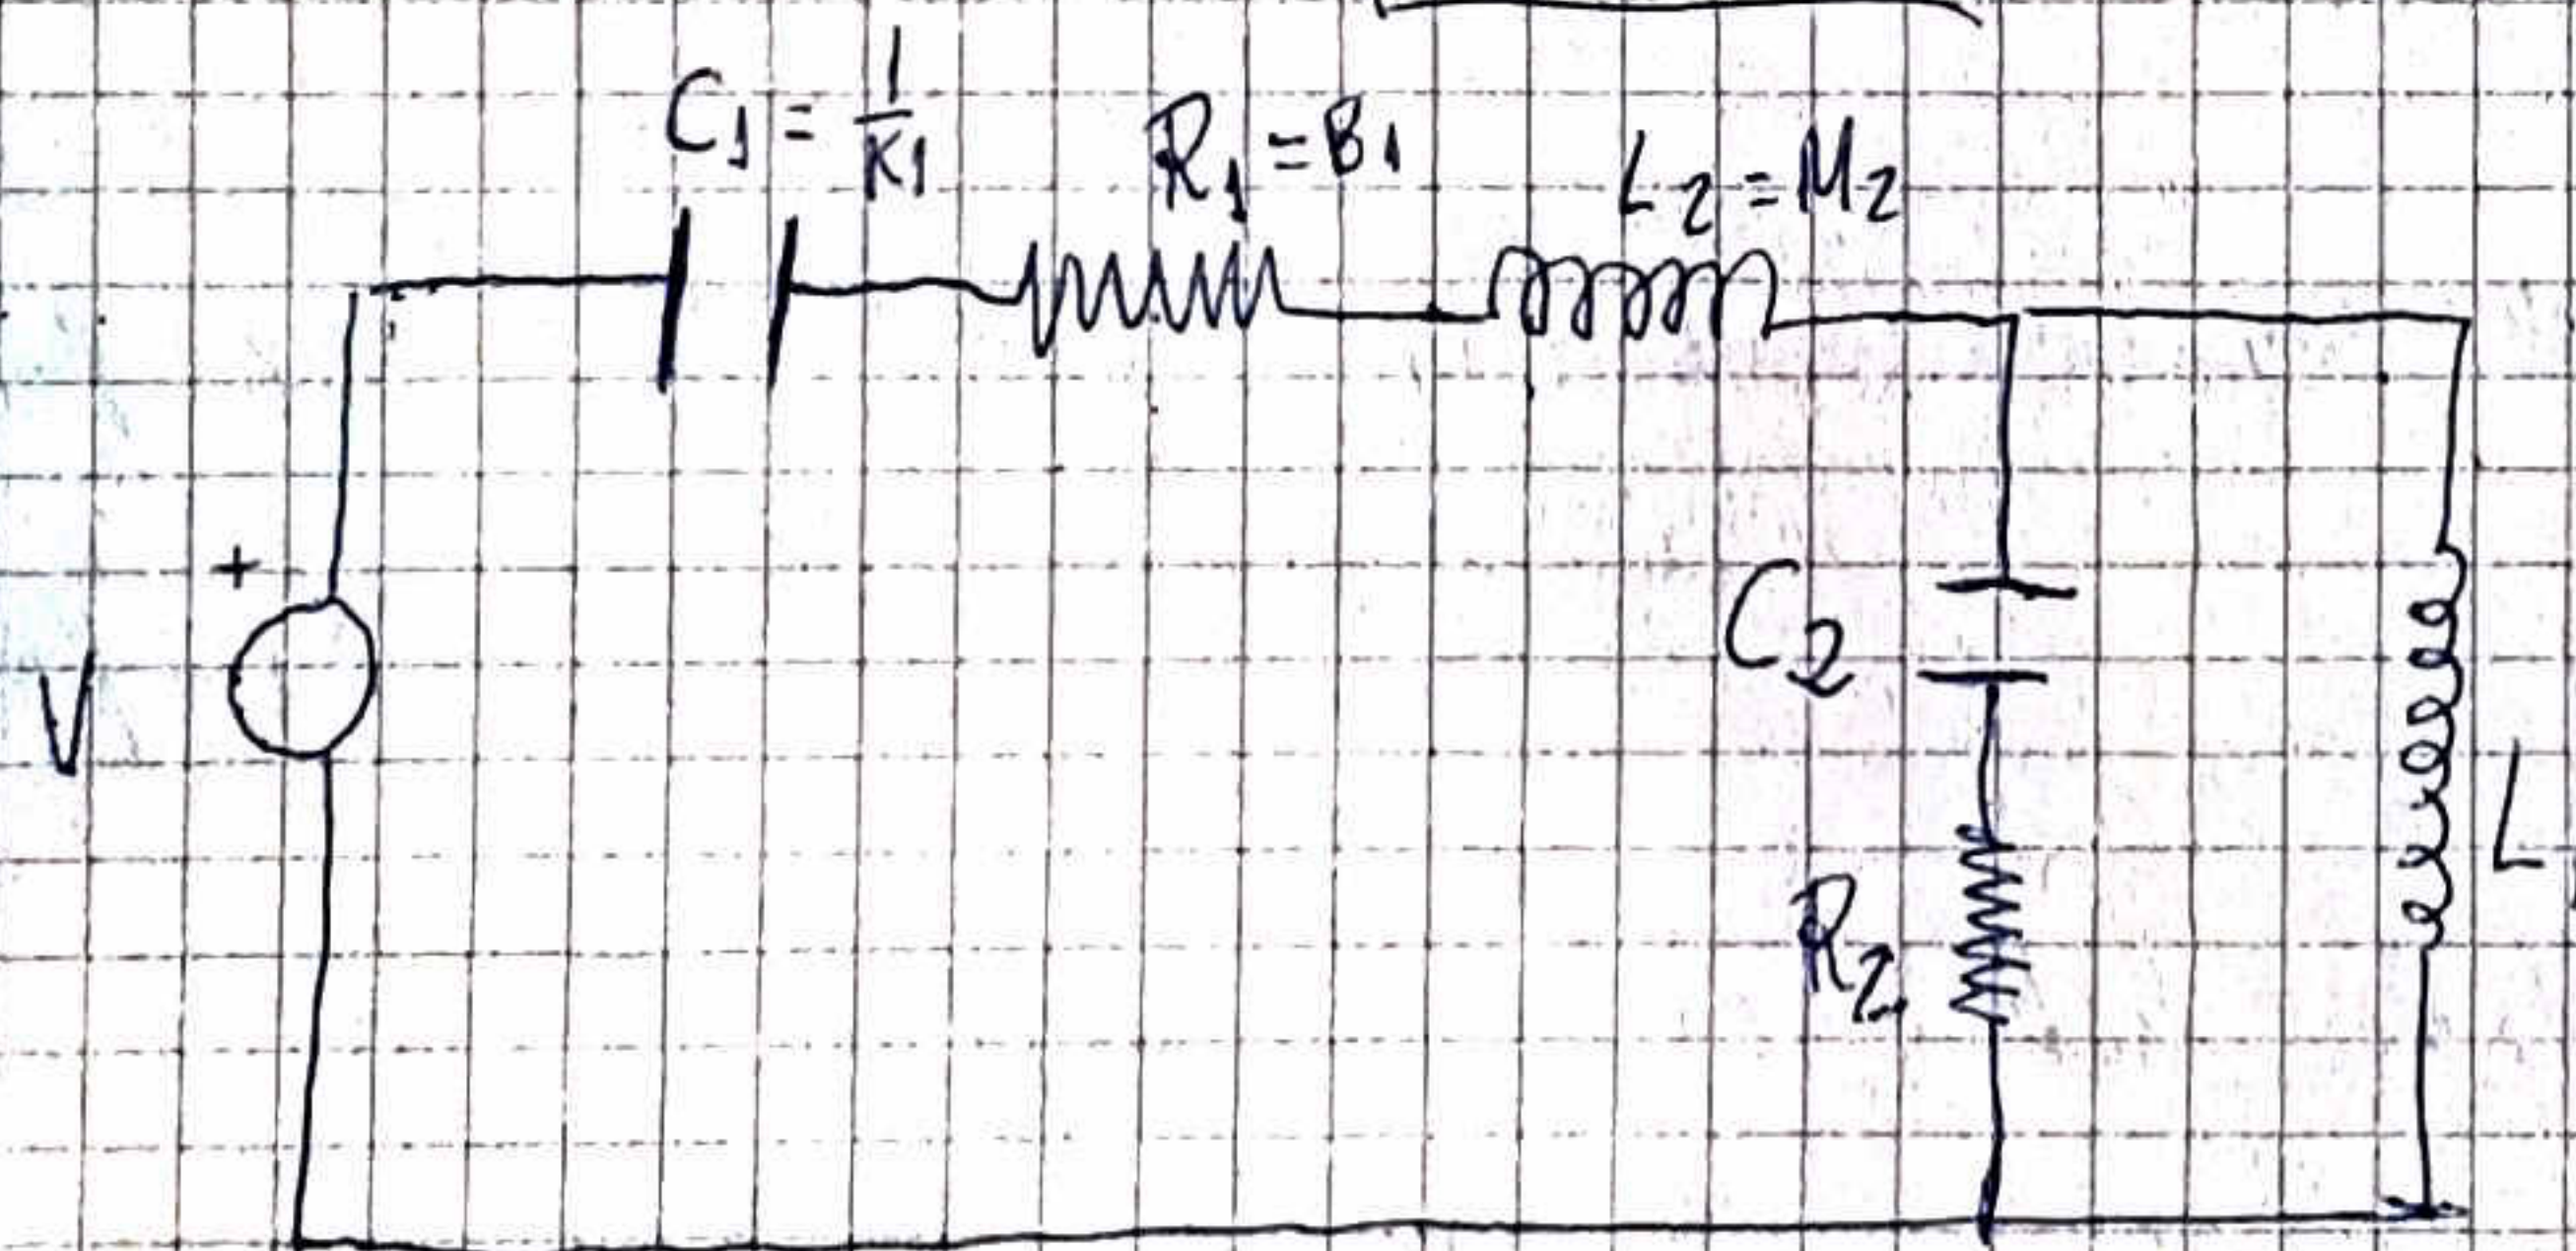 C1 = 1/K1
R1 = B1
L2 = M2
+
V
C2
R2
L